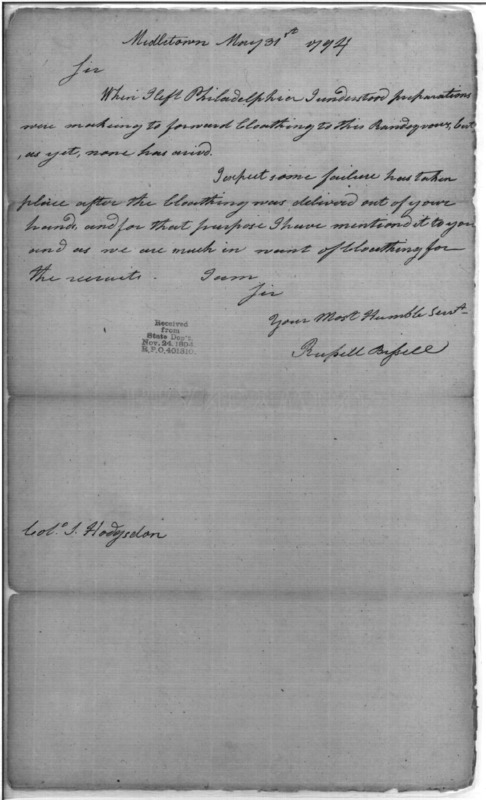 Midletown May 31st 1794
Sir
When I left Philadelphia I understood preparations
were making to forward Cloathing to this Randsgvous, but
, as yet, none has arivd.
I expect some failure has taken
place after the Cloathing was deliverd out of your
hands. and for that purpose I have mentiond it to you
and as we are much in want of Cloathing for
the recruits. I am
Sir
Your Most Humble Servt
Russell Bissell
Received
from
State Dep't.
Nov. 24, 1894
R.P.O. 401310.
Colo. S. Hodgsdon